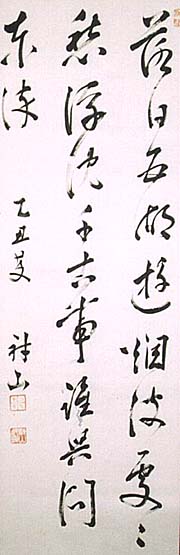 落日五湖遊烟波處〻
愁浮沈千古事誰與問
東流
乙丑夏